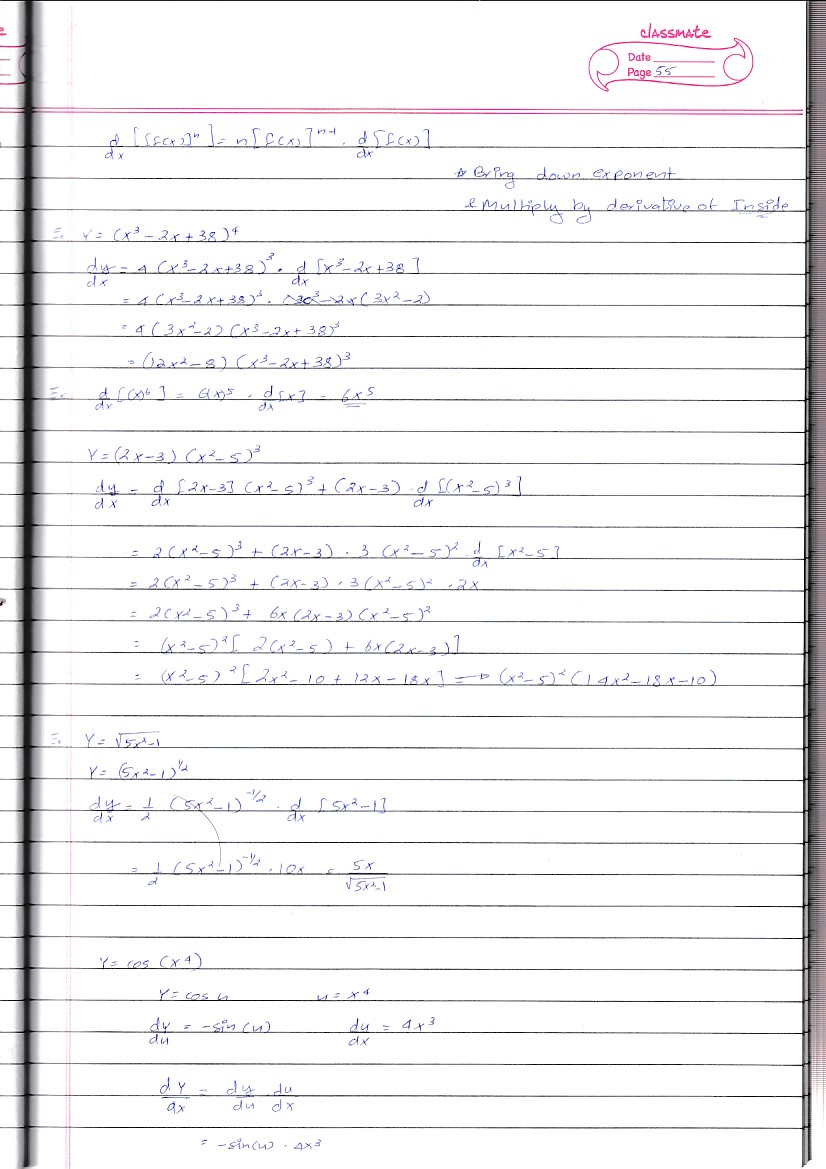 classmate
Date
Page 55
d/dx [[f(x)]ⁿ] = n[f(x)]ⁿ⁻¹ · d/dx [f(x)]
* Bring down exponent
& Multiply by derivative of Inside
E: Y = (x³ - 2x + 38)⁴
dy/dx = 4 (x³ - 2x + 38)³ · d/dx [x³ - 2x + 38]
= 4 (x³ - 2x + 38)³ · (3x² - 2)
= 4 (3x² - 2) (x³ - 2x + 38)³
= (12x² - 8) (x³ - 2x + 38)³
E: d/dx [(x)⁶] = 6(x)⁵ · d/dx [x] = 6x⁵
Y = (2x - 3) (x² - 5)³
dy/dx = d/dx [2x - 3] (x² - 5)³ + (2x - 3) · d/dx [(x² - 5)³]
= 2(x² - 5)³ + (2x - 3) · 3 (x² - 5)² · d/dx [x² - 5]
= 2(x² - 5)³ + (2x - 3) · 3(x² - 5)² · 2x
= 2(x² - 5)³ + 6x (2x - 3) (x² - 5)²
= (x² - 5)² [2(x² - 5) + 6x(2x - 3)]
= (x² - 5)² [2x² - 10 + 12x - 18x] => (x² - 5)² (14x² - 18x - 10)
E: Y = √5x² - 1
Y = (5x² - 1)^1/2
dy/dx = 1/2 (5x² - 1)^-1/2 · d/dx [5x² - 1]
= 1/2 (5x² - 1)^-1/2 · 10x = 5x/√5x² - 1
Y = cos (x⁴)
Y = cos u u = x⁴
dy/du = -sin (u) du/dx = 4x³
dY/dx = dy/du du/dx
= -sin(u) · 4x³